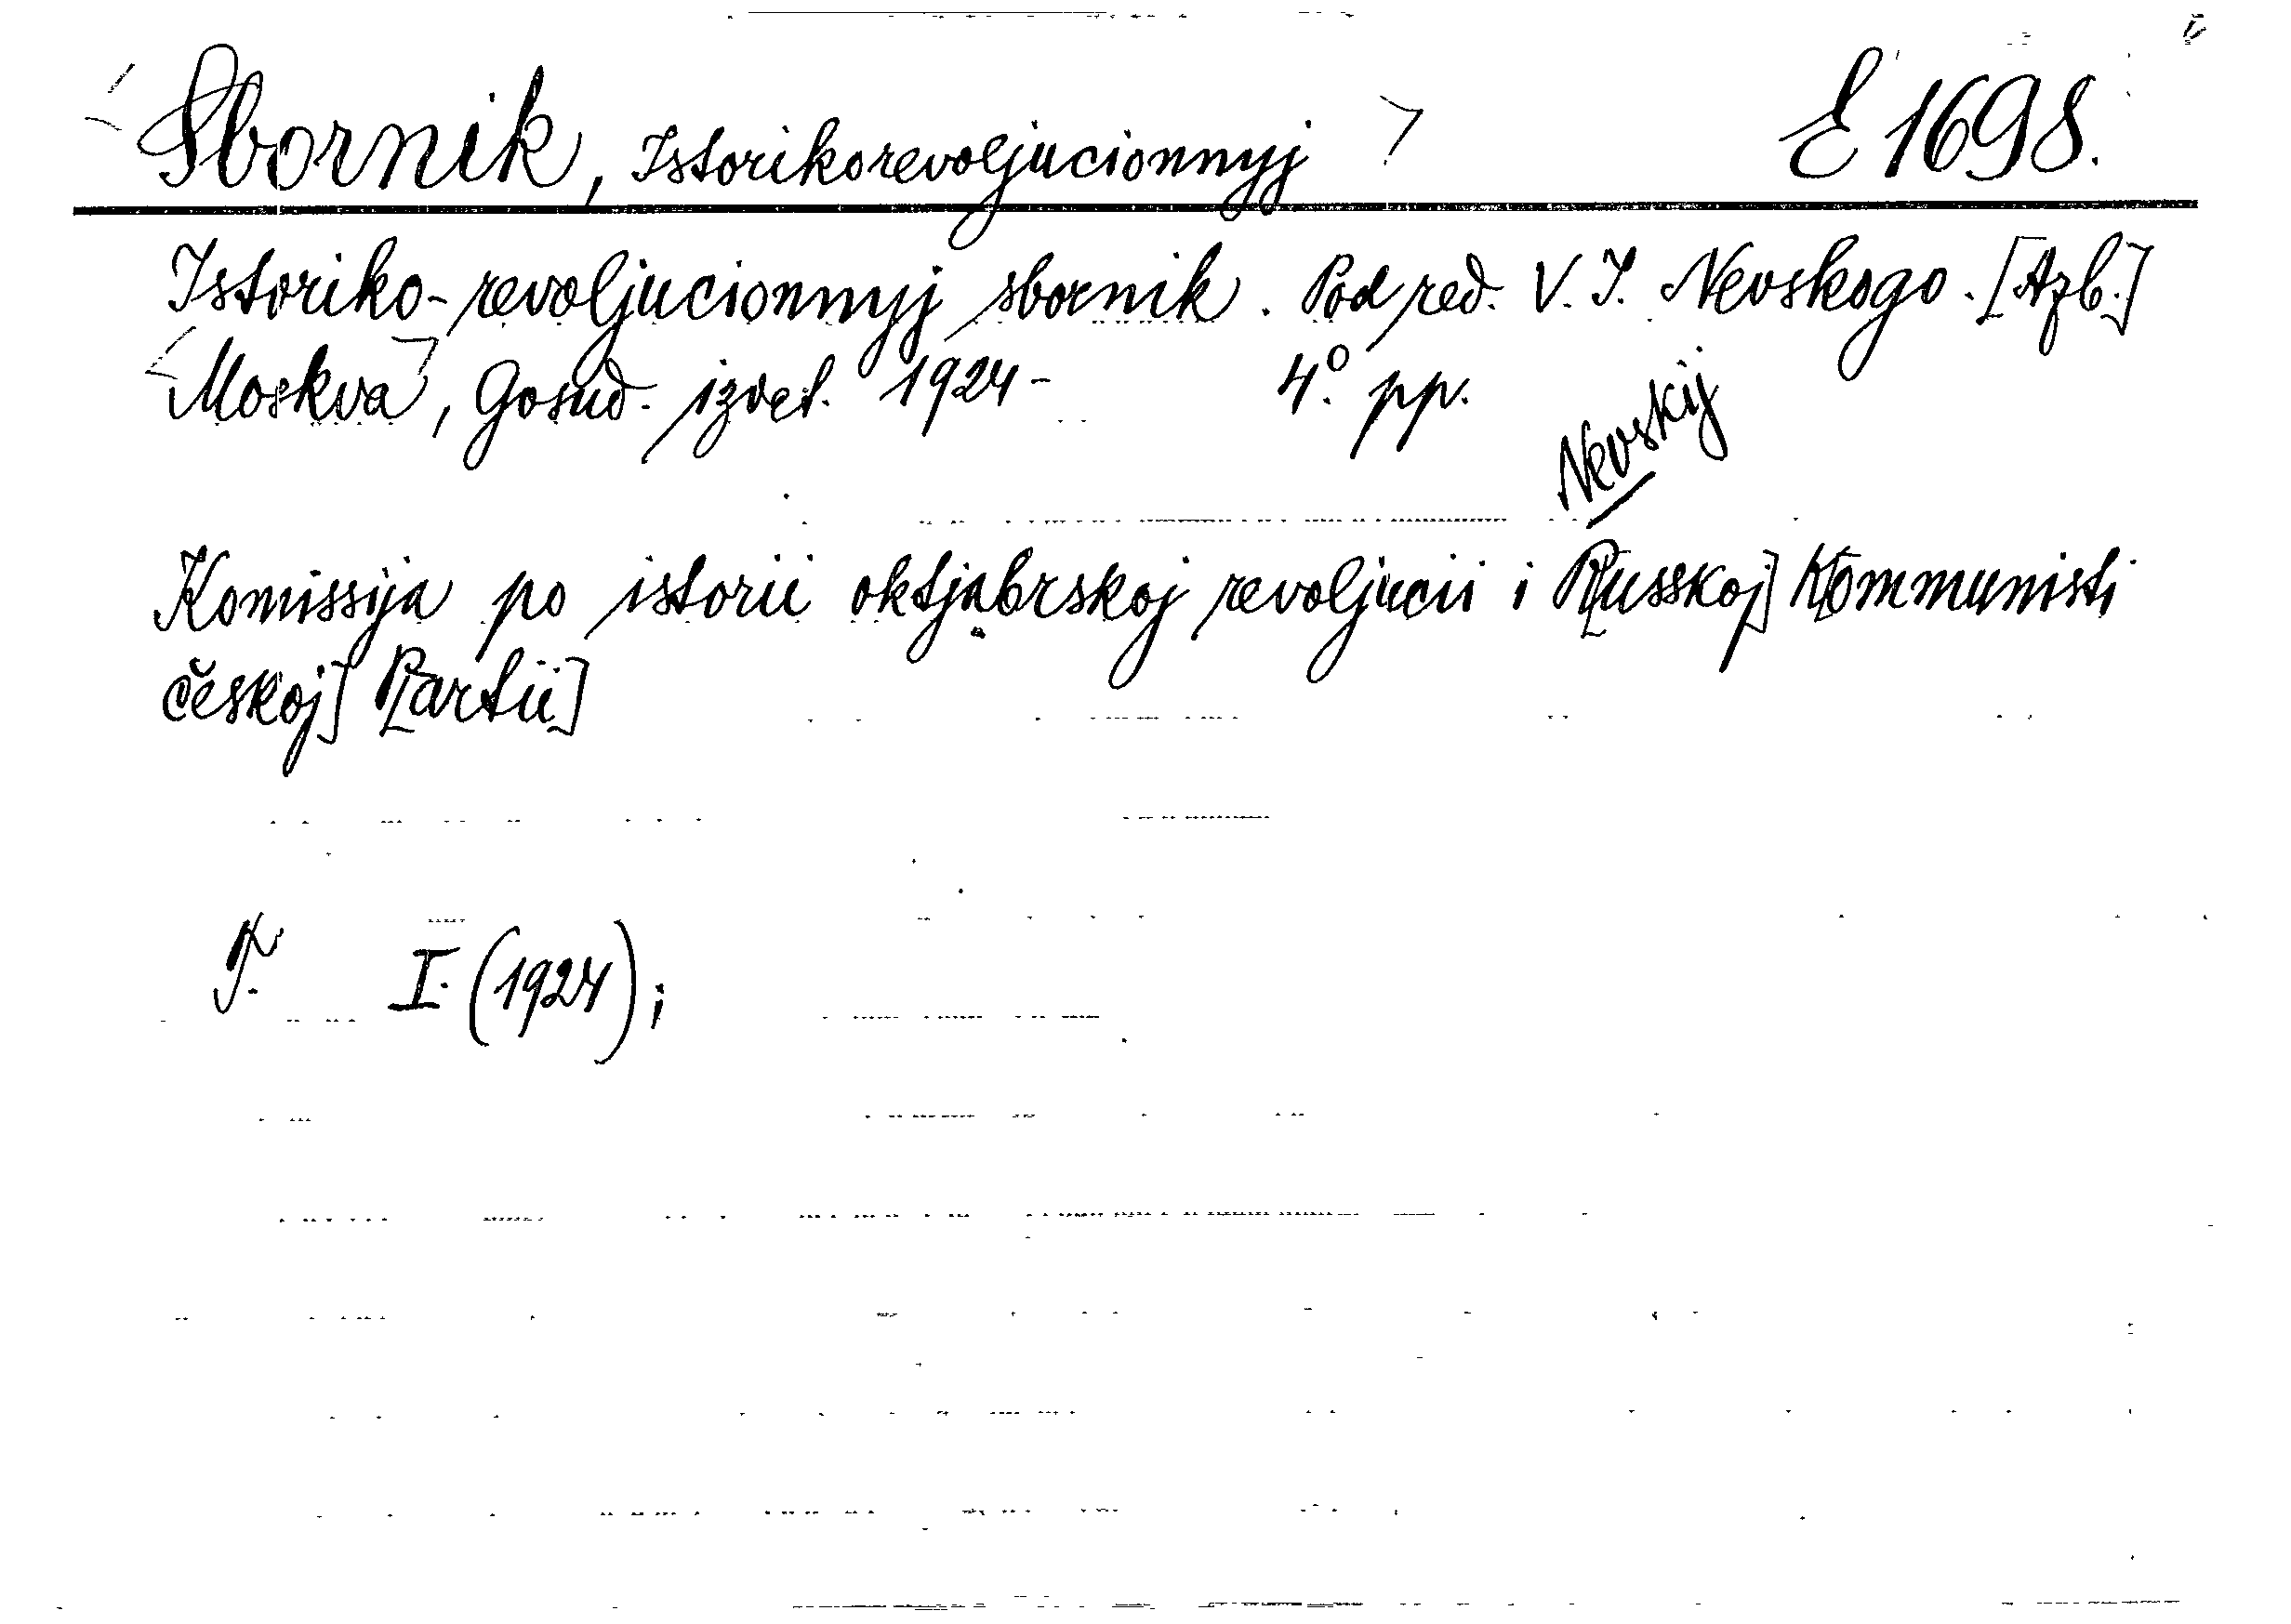 Sbornik, Istorikorevoljucionnyj E 1698.
Istoriko-revoljucionnyj sbornik. Pod red. V. I. Nevskogo. [Azb.]
Moskva, Gosud. izdat. 1924- 4° pp.
Nevskij
Komissija po istorii oktjabrskoj revoljucii i R[usskoj] K[ommunisti
českoj] P[artii]
T. I. (1924);